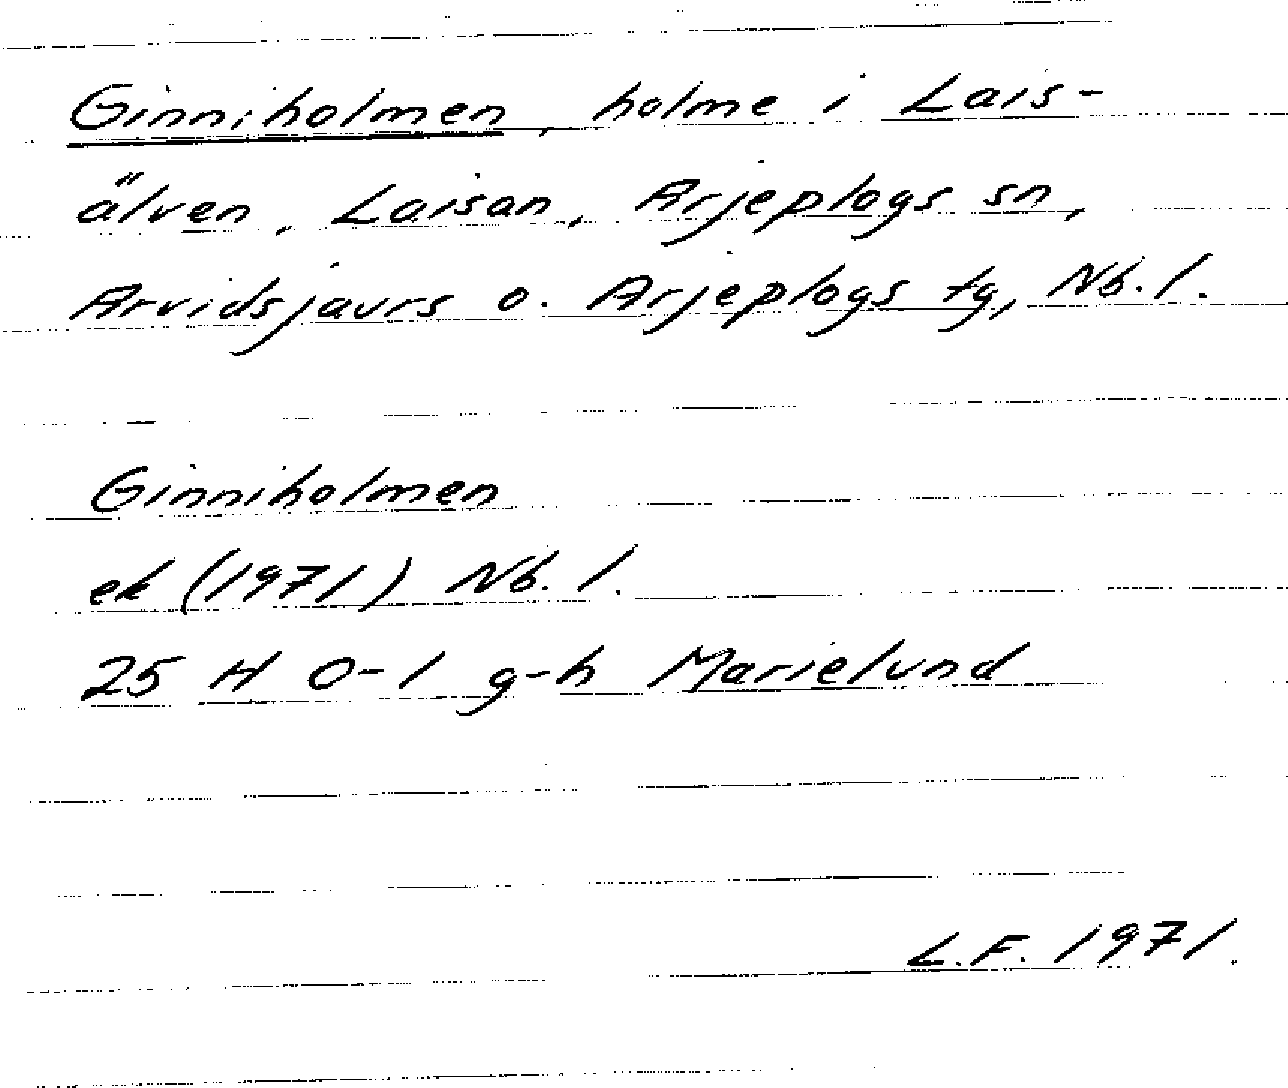 Ginniholmen, holme i Lais-
älven, Laisan, Arjeplogs sn,
Arvidsjaurs o. Arjeplogs tg, Nb. l.
Ginniholmen
ek (1971) Nb. l.
25 H 0-1 g-h Marielund
L.F. 1971.